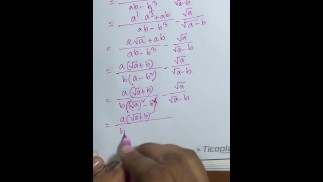 =
= a¹ · a^½ + ab / ab - b³ - √a / √a - b
= a√a + ab / ab - b³ - √a / √a - b
= a(√a + b) / b(a - b²) - √a / √a - b
= a(√a + b) / b{(√a)² - b²} - √a / √a - b
= a(√a + b) / b
Ticopla